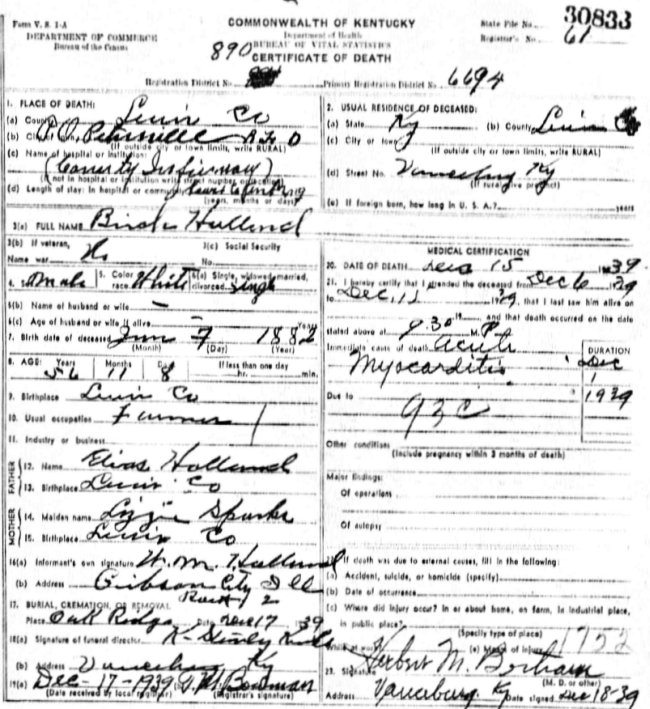 Form V. S. 1-A
DEPARTMENT OF COMMERCE
Bureau of the Census
COMMONWEALTH OF KENTUCKY
Department of Health
890 BUREAU OF VITAL STATISTICS
CERTIFICATE OF DEATH
State File No. 30833
Registrar's No. 61
Registration District No. Primary Registration District No. 6694
1. PLACE OF DEATH:
(a) County Lewis Co
(b) City
(If outside city or town limits, write RURAL)
(c) Name of hospital or institution:
(County Infirmary)
(If not in hospital or institution write street number or location)
(d) Length of stay: In hospital or community
(years, months or days)
2. USUAL RESIDENCE OF DECEASED:
(a) State Ky (b) County Lewis Co
(c) City or town
(If outside city or town limits, write RURAL)
(d) Street No. Vanceburg Ky
(If rural give precinct)
(e) If foreign born, how long in U. S. A.? years
3(a) FULL NAME Holland
3(b) If veteran, 3(c) Social Security
Name war No No.
4. Sex Male 5. Color race White 6(a) Single, widowed, married, divorced Single
6(b) Name of husband or wife —
6(c) Age of husband or wife if alive — Years
7. Birth date of deceased 7 1882
(Month) (Day) (Year)
8. AGE: Years Months Days If less than one day
56 11 8 hr. min.
9. Birthplace Lewis Co
10. Usual occupation Farmer
11. Industry or business
FATHER
12. Name Elias Holland
13. Birthplace Lewis Co
MOTHER
14. Maiden name Lizzie Sparks
15. Birthplace Lewis Co
16(a) Informant's own signature W. M. Holland
(b) Address Gibson City Ill
17. BURIAL, CREMATION, OR REMOVAL
Place Oak Ridge Date Dec 17 1939
18(a) Signature of funeral director
(b) Address Vanceburg Ky
19(a) Dec-17-1939 Bowman
(Date received by local registrar) (Registrar's signature)
MEDICAL CERTIFICATION
20. DATE OF DEATH Dec 15 1939
21. I hereby certify that I attended the deceased from Dec 6 1939
to Dec. 1939, that I last saw him alive on
and that death occurred on the date
stated above at 9.30 P M.
Immediate cause of death Acute
Myocarditis
DURATION
Dec
1
1939
Due to
93c
Other conditions
(Include pregnancy within 3 months of death)
Major findings:
Of operations
Of autopsy
22. If death was due to external causes, fill in the following:
(a) Accident, suicide, or homicide (specify)
(b) Date of occurrence
(c) Where did injury occur? In or about home, on farm, in industrial place,
in public place?
(Specify type of place)
While at work? (e) Means of injury 1752
23. Signature Herbert M. Bertram
(M. D. or other)
Address Vanceburg Ky Date signed Dec 18-39